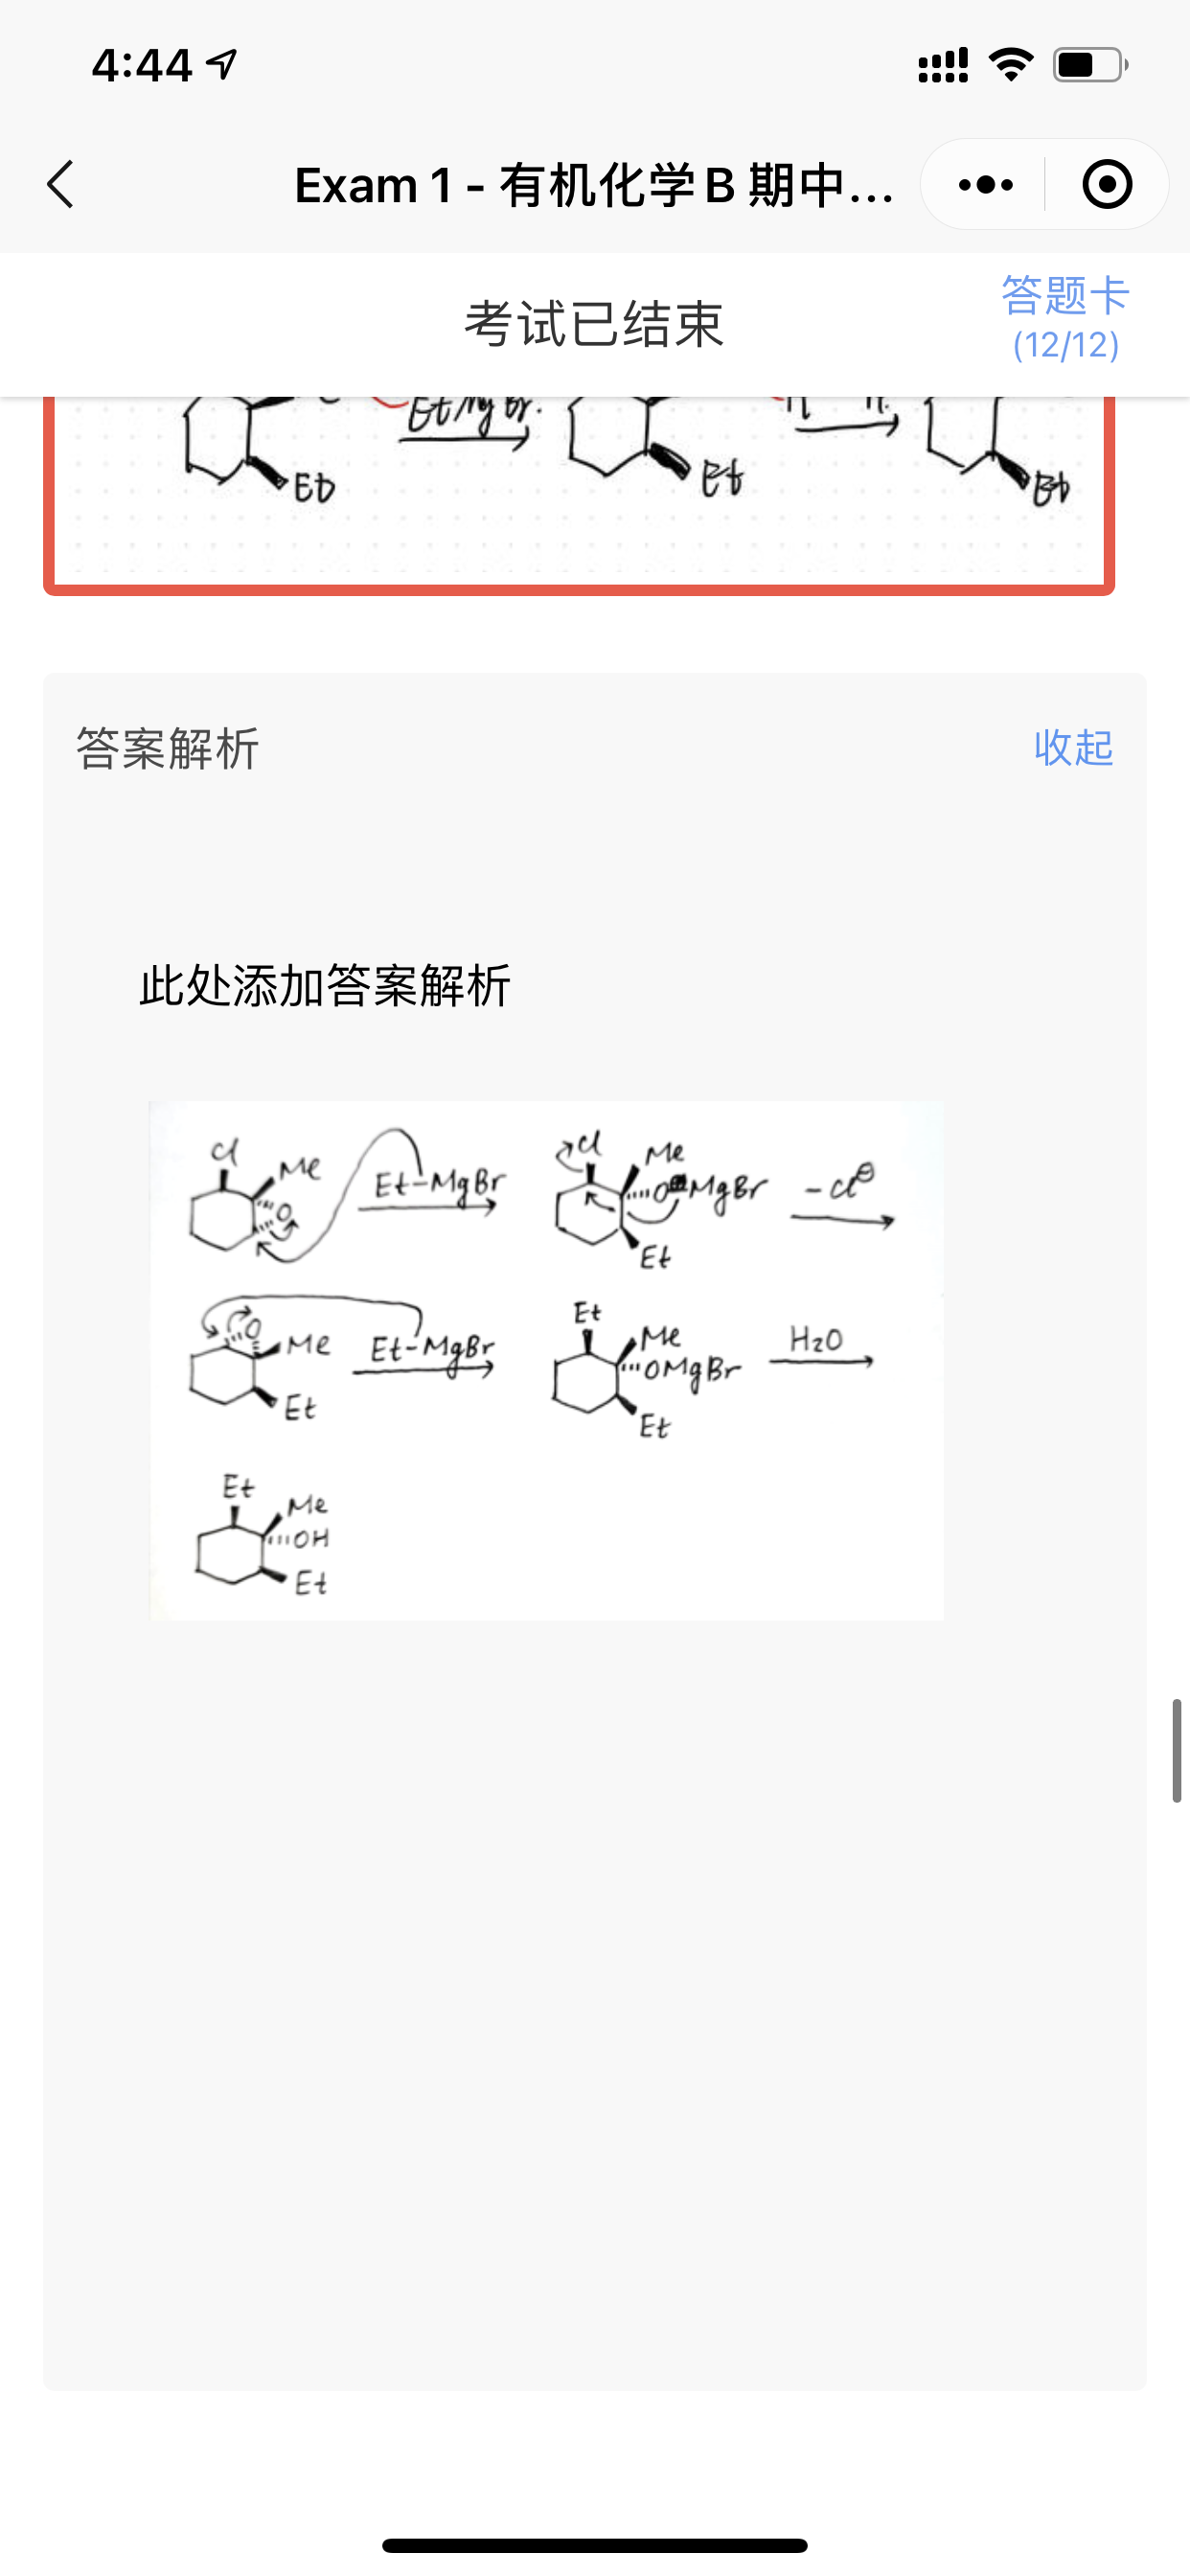 4:44
Exam 1 - 有机化学B 期中...
考试已结束
答题卡
(12/12)
EtMgBr.
Et
Et
Et
答案解析
收起
此处添加答案解析
Cl
Me
O
Et-MgBr
Cl
Me
O MgBr
Et
- Cl⊖
O
Me
Et
Et-MgBr
Et
Me
OMgBr
Et
H2O
Et
Me
OH
Et